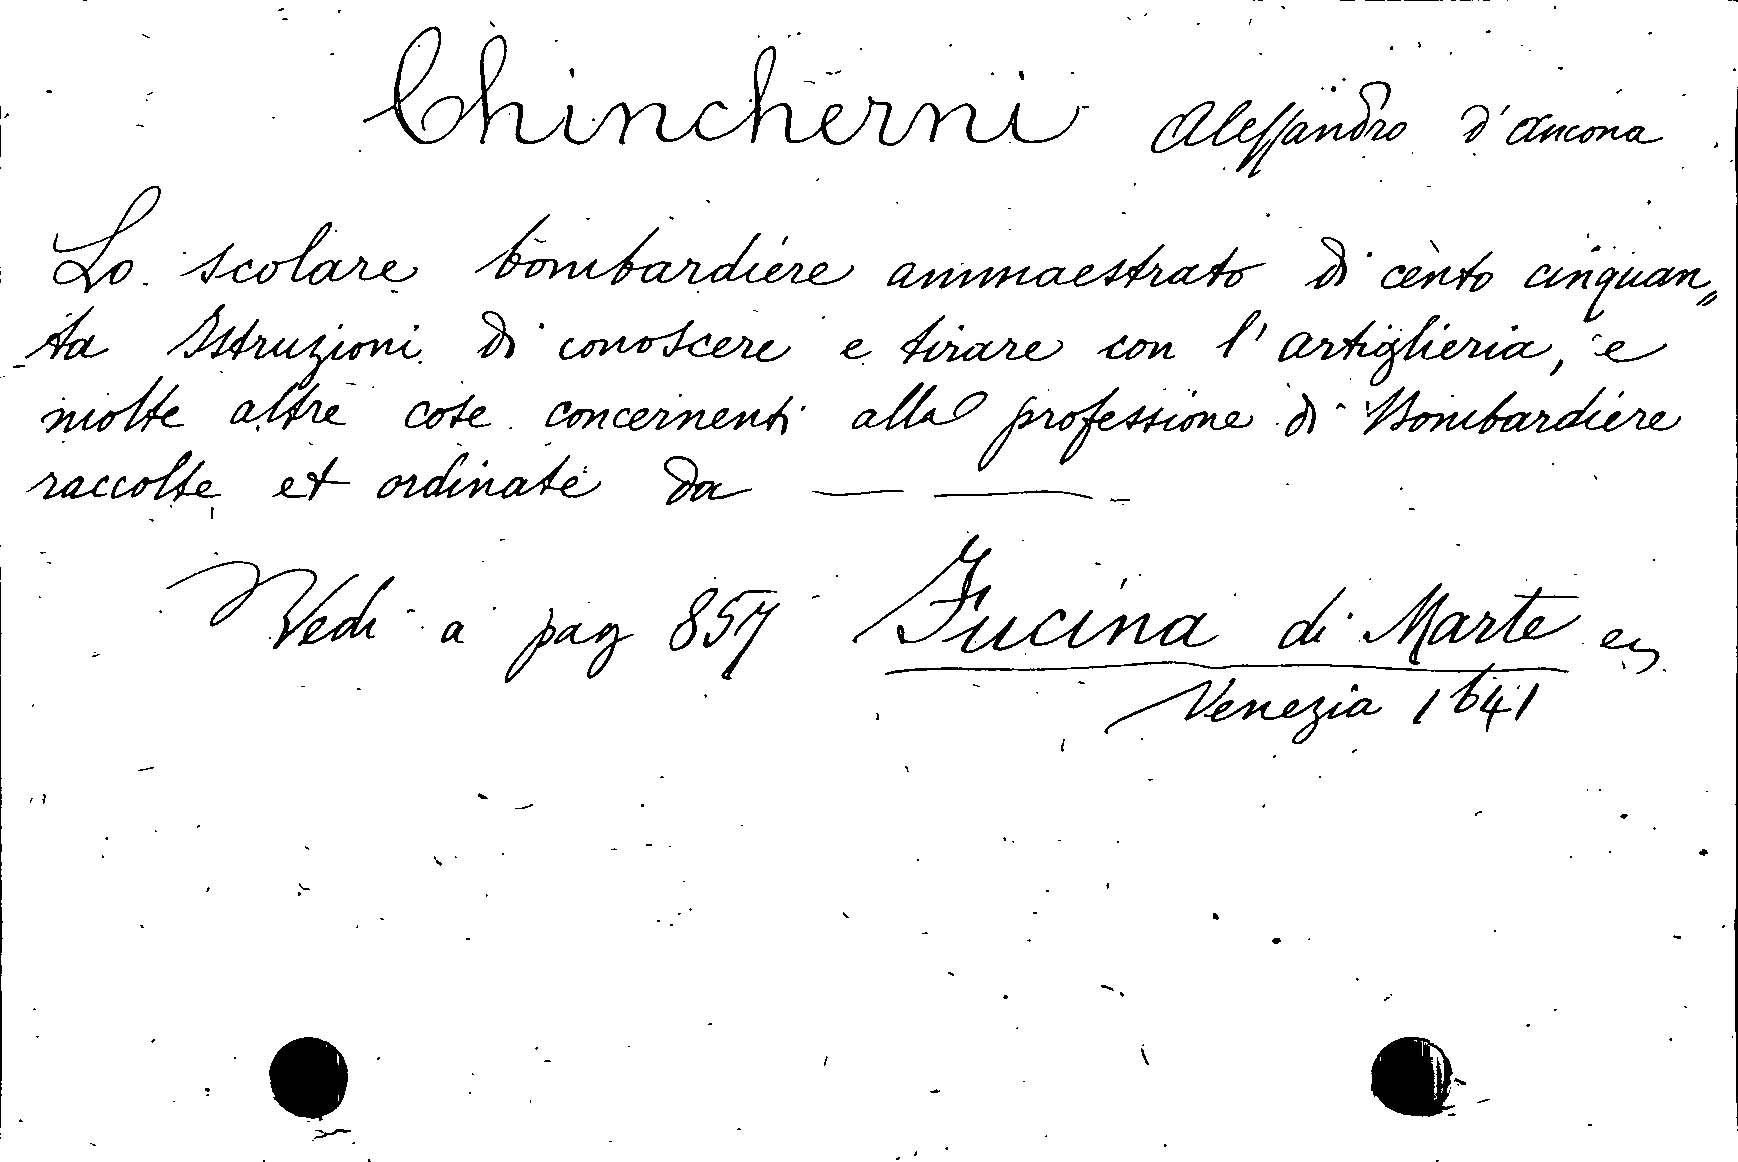 Chincherni Alessandro d'Ancona
Lo scolare bombardiere ammaestrato di cento cinquan„
ta Istruzioni di conoscere e tirare con l'artiglieria, e
molte altre cose concernenti alla professione di Bombardiere
raccolte et ordinate da — —
Vedi a pag 857 Fucina di Marte
Venezia 1641